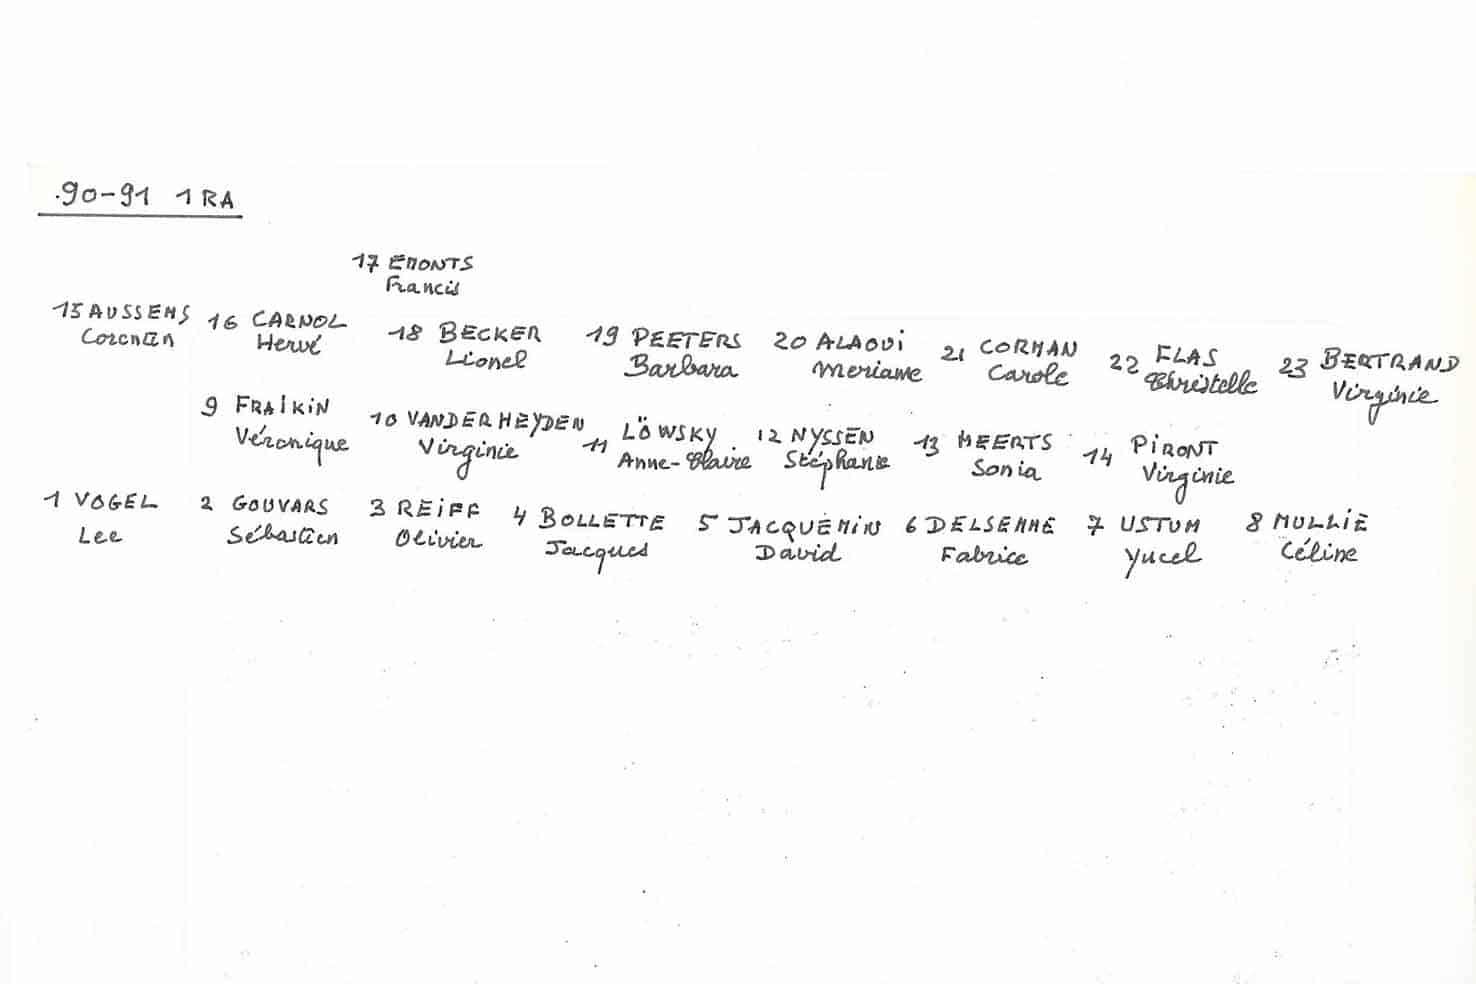 90-91 1RA
17 EMONTS
Francis
15 AUSSEMS 16 CARNOL 18 BECKER 19 PEETERS 20 ALAOUI 21 CORMAN 22 FLAS 23 BERTRAND
Hervé Lionel Barbara Meriame Carole Christelle Virginie
9 FRAIKIN 10 VANDERHEYDEN 11 LÖWSKY 12 NYSSEN 13 MEERTS 14 PIRONT
Véronique Virginie Anne-Claire Stéphanie Sonia Virginie
1 VOGEL 2 GOUVARS 3 REIFF 4 BOLLETTE 5 JACQUEMIN 6 DELSEMME 7 USTUM 8 MULLIE
Lee Sébastien Olivier Jacques David Fabrice Yucel Céline